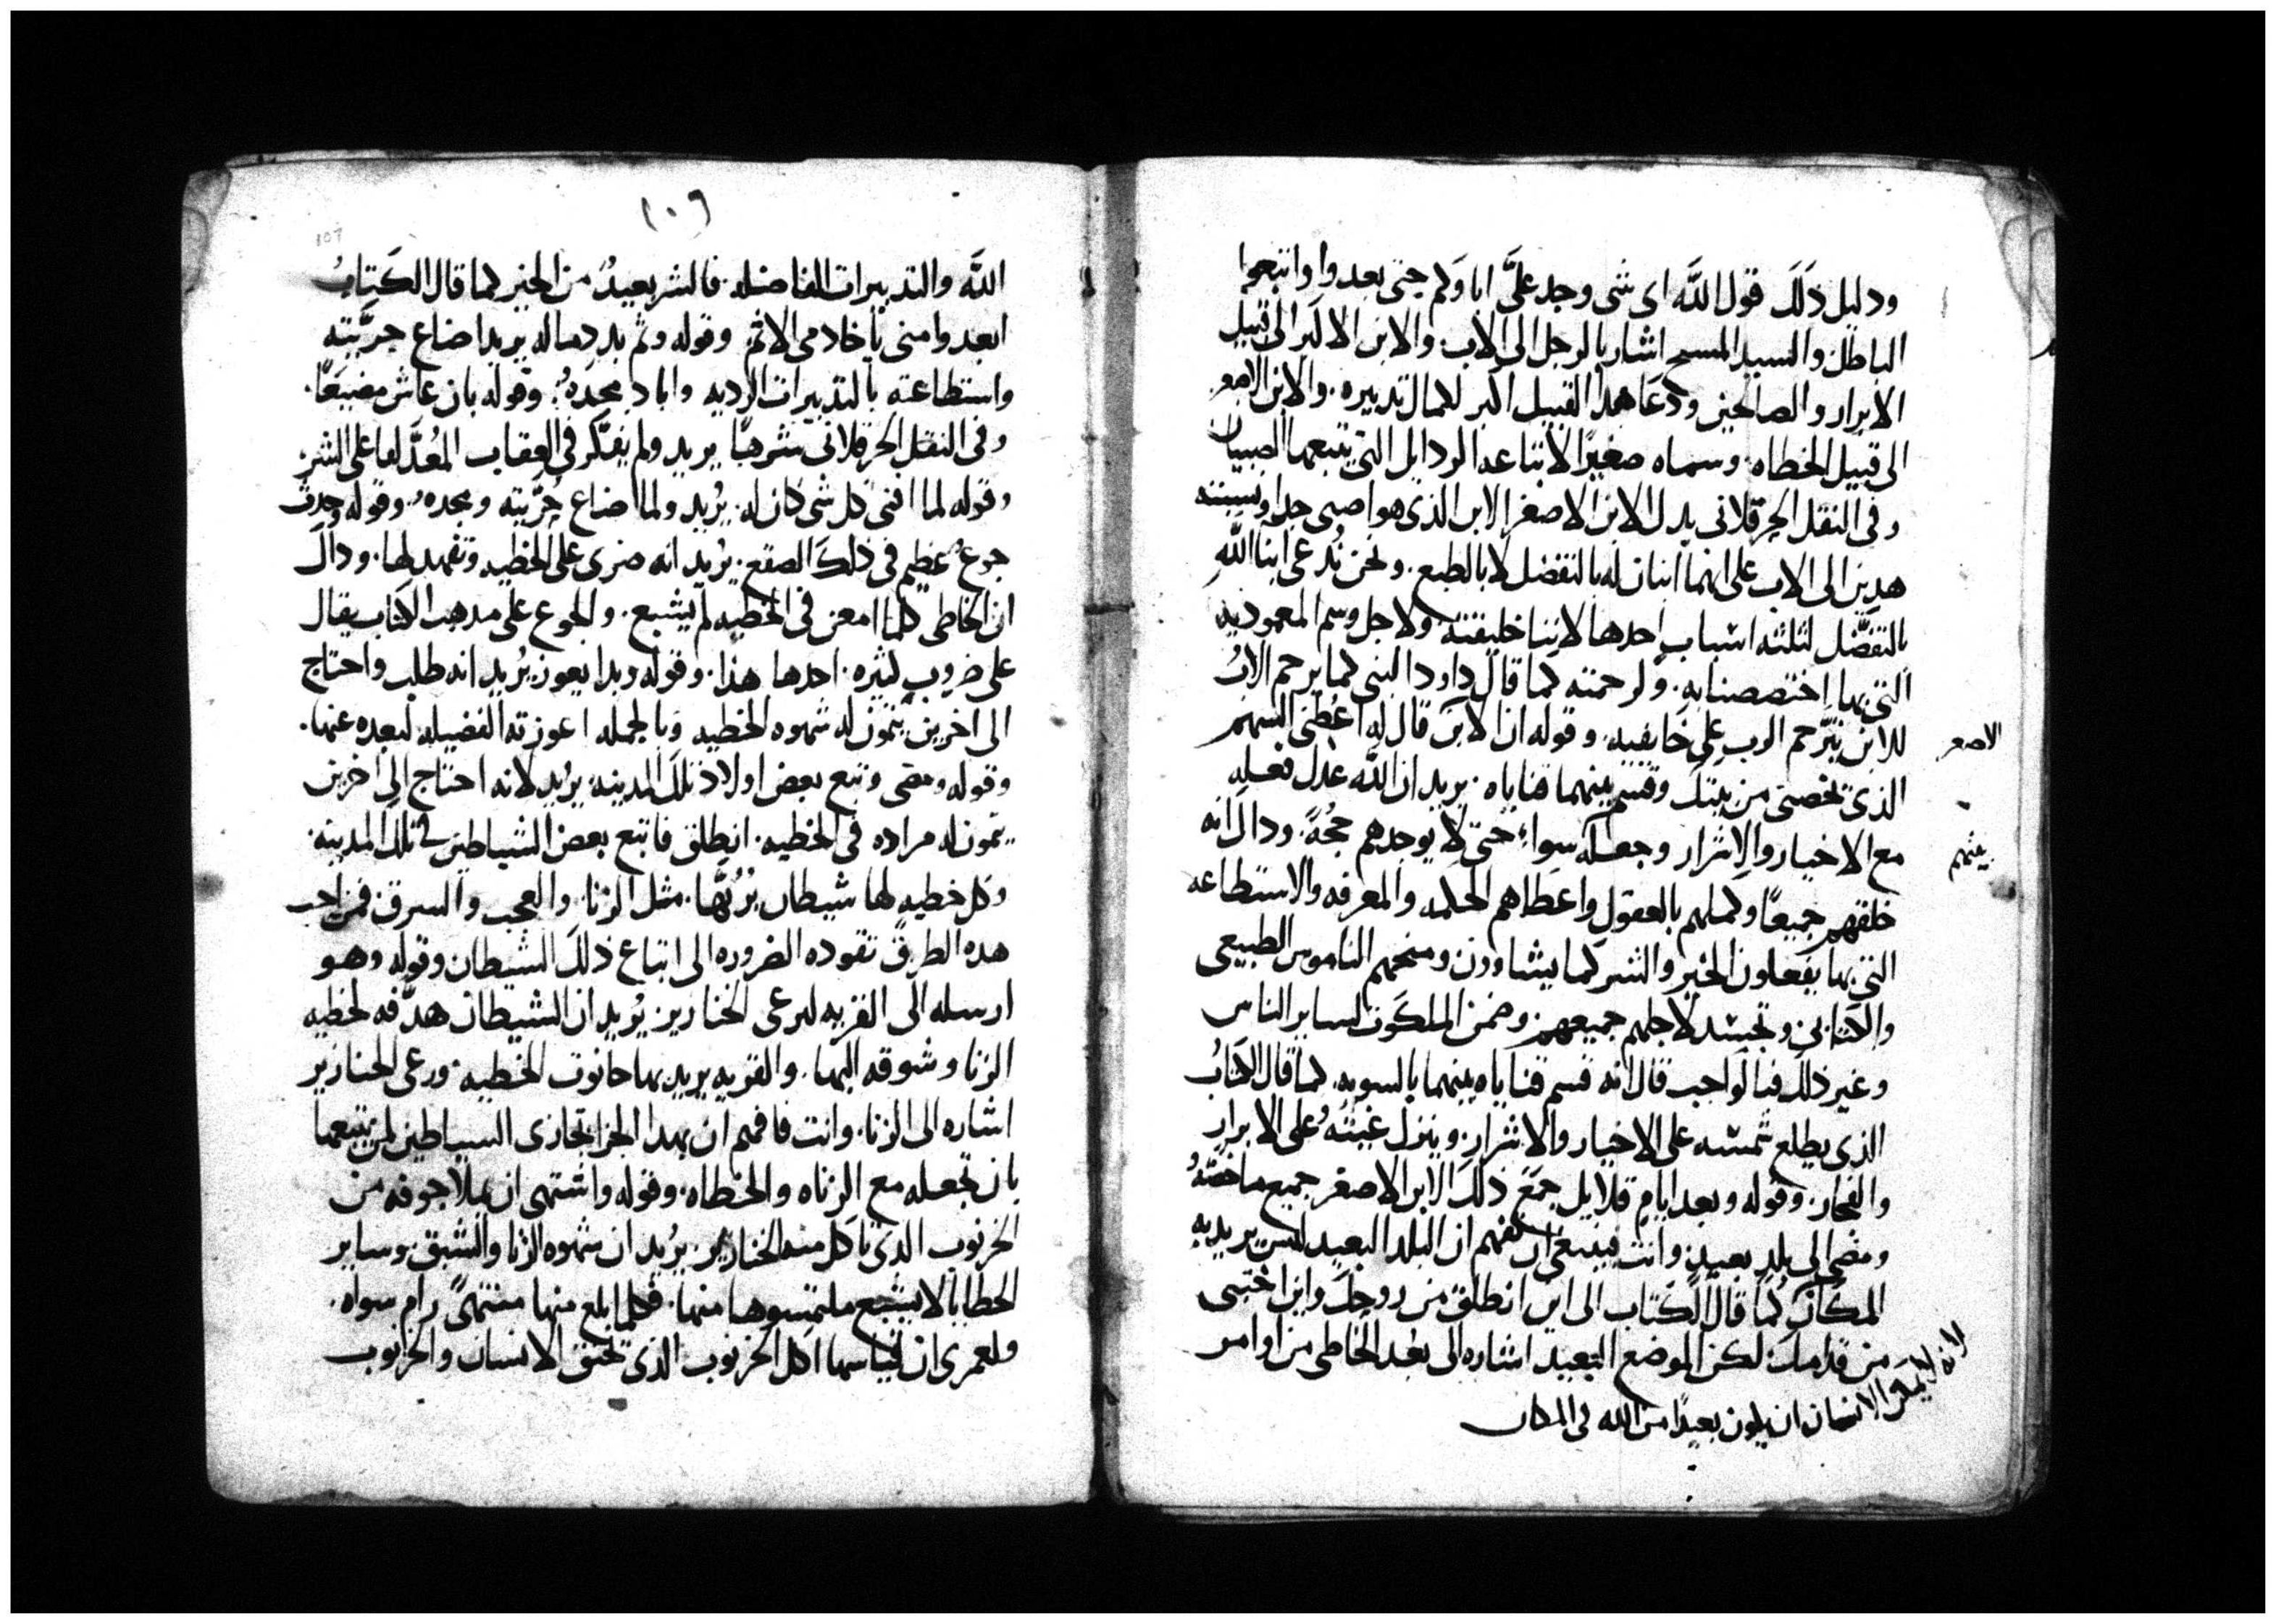 ودليل ذلك قول الله اى شى وجد علىَّ اباوكم حتى بعدوا واتبعوا
الباطل والسيد المسيح اشار بالرجل الى الاب والابن الاكبر الى قبيل
الابرار والصالحين ودعا هذا القبيل اكبر لكمال تدبيره. والابن الاصغر
الى قبيل الخطاه. وسماه صغيرًا لاتباعه الردايل التى يتبعها الصبيان
وفى النقل الحرقلانى بدل الابن الاصغر الابن الذى هو اصبى جدا ويستند
هدين الى الاب على انهما ابنان له بالتفضل لا بالطبع. ونحن نُدعى ابنا الله
بالتفضّل لثلثه اسباب احدها لاننا خليقته ولاجل وسم المعموديه
التى بها اختصصنا به. ولرحمته كما قال داود النبى كما يرحم الابُ
للابن يترحم الرب على خايفيه. وقوله ان الابن قال له اعطنى السهم
الاصغر
الذى يخصنى من بيتك وقسم بينهما قناياه. يريد ان الله عدل فعله
مع الاخيار والاشرار وجعله سواء حتى لا يوجدهم حجُةً. ودالك انه
بينهم
خلقهم جميعًا وكملهم بالعقول واعطاهم الحكمه والمعرفه والاستطاعه
التى بها يفعلون الخير والشر كما يشاوون ومنحهم الناموس الطبيعى
والكتابى وتجسد لاجلهم جميعهم وضمن الملكوت لساير الناس
وغير ذلك فبالواجب قال انه قسم قناياه بينهما بالسويه. كما قال الكتابُ
الذى يطلع شمسه على الاخيار والاشرار. وينزل غيثهُ على الابرار
والفجار. وقوله وبعد ايام قلايل جمع ذلك الابن الاصغر جميع ما خصّهُ
ومضى الى بلدٍ بعيدٍ وانت فينبغى ان تفهم ان البلد البعيد ليس يريد به
المكان كما قال الكتاب الى اين انطلق من روحك واين اختبى
من قدامك. لكن الموضع البعيد اشاره الى بعد الخاطى من اوامر
لانه لا يمكن الانسان ان يكون بعيدًا من الله فى المكان
١٠٦
107
الله والتدبيرات الفاضله. فالشر بعيدٌ من الخير كما قال الكتابُ
ابعدوا منى يا خادمى الاثم وقوله وثم بدد ماله يريد اضاع حرّيته
واستطاعته بالتدبيرات الرديه واباد مجدهُ. وقوله بان عاش مضيعًا.
وفى النقل الحرقلانى شرهًا يريد ولم يفكّر فى العقاب المُعدّ لفاعلى الشر.
وقوله لما افنى كل شى كان له. يُريد ولما اضاع حُرّيته ومجدهُ. وقوله حدث
جوعٌ عظيم فى ذلك الصقع. يُريد انه ضرى على الخطيه وتفهد لها. وداك
ان الخاطى كلما امعن فى الخطيه لم يشبع. والجوع على مدهب الكتاب يقال
على ضروبٍ كثيره. احدها هذا. وقوله وبدا يعوز. يُريد انه طلب واحتاج
الى اخرين يتمون له شهوه الخطيه وبالجمله اعوزته الفضيله لبعده عنها.
وقوله ومضى وتبع بعض اولاد تلك المدينه. يريد لانه احتاج الى اخرين
يتمون له مراده فى الخطيه. انطلق فاتبع بعض الشياطين فى تلك المدينه.
وكل خطيه لها شيطان يُربُّها. مثل الزنا. والعجب والسرق. فمن احب
هده الطرق تقوده الضروره الى اتباع ذلك الشيطان وقوله وهو
ارسله الى القريه ليرعى الخنازير. يُريد ان الشيطان هدّفه لخطيه
الزنا وشوقه اليها. والقريه يريد بها حانوت الخطيه. ورعى الخنازير
اشاره الى الزنا. وانت فافهم ان بهدا الجزا تجازى الشياطين لمن يتبعها
بان تجعله مع الزناه والخطاه. وقوله واشتهى ان يملا جوفه من
الخرنوب الذى تاكل منه الخنازير. يُريد ان شهوه الزنا والشبق وساير
الخطايا لا يشبع ملتمسوها منها. فكلما بلغ منها منتهىً رام سواه.
ولعمرى ان قياسها اكل الخرنوب الذى تخنق الانسان والخرنوب